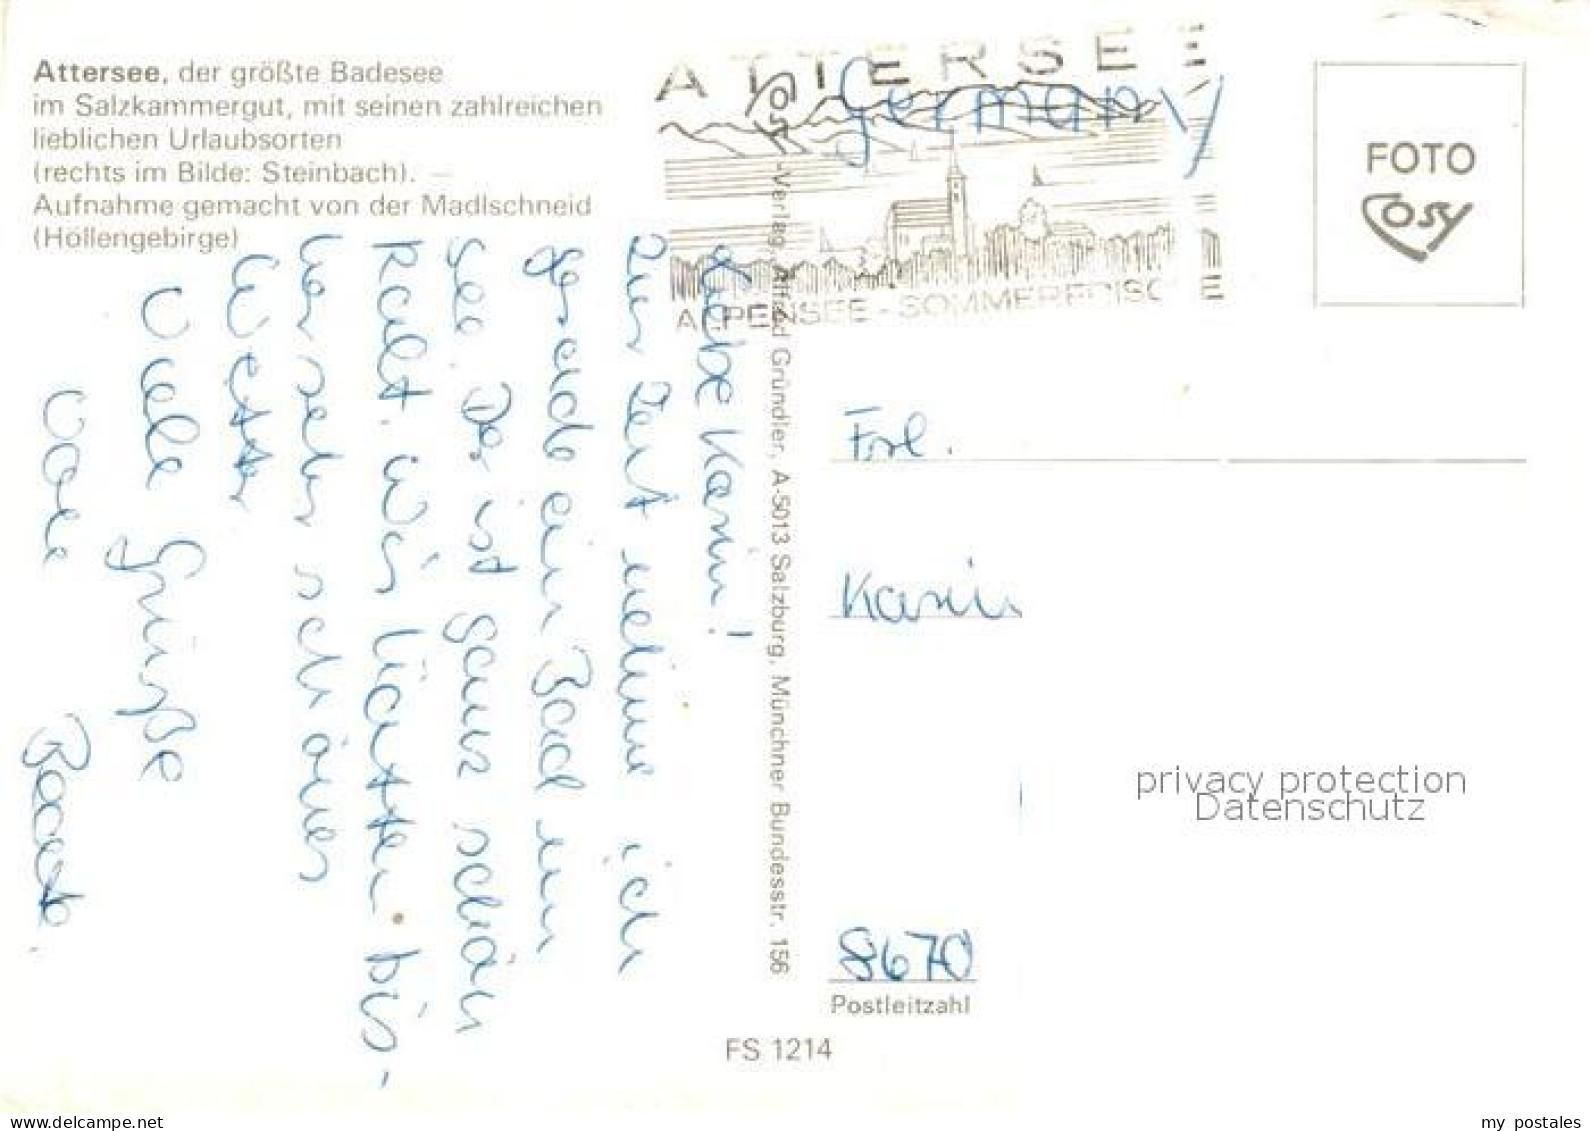 Attersee, der größte Badesee
im Salzkammergut, mit seinen zahlreichen
lieblichen Urlaubsorten
(rechts im Bilde: Steinbach). —
Aufnahme gemacht von der Madlschneid
(Höllengebirge)
Liebe Karin!
Zur Zeit nehme ich
gerade ein Bad im
See. Der ist ganz schön
kalt. Wir hatten bis-
her sehr schönes
Wetter
Viele Grüße
Beate.
Cosy-Verlag, Alfred Gründler, A-5013 Salzburg, Münchner Bundesstr. 156
ATTERSEE
ALPENSEE - SOMMER
Germany
FOTO
Cosy
Frl.
Karin
privacy protection
Datenschutz
8670
Postleitzahl
FS 1214
my postales